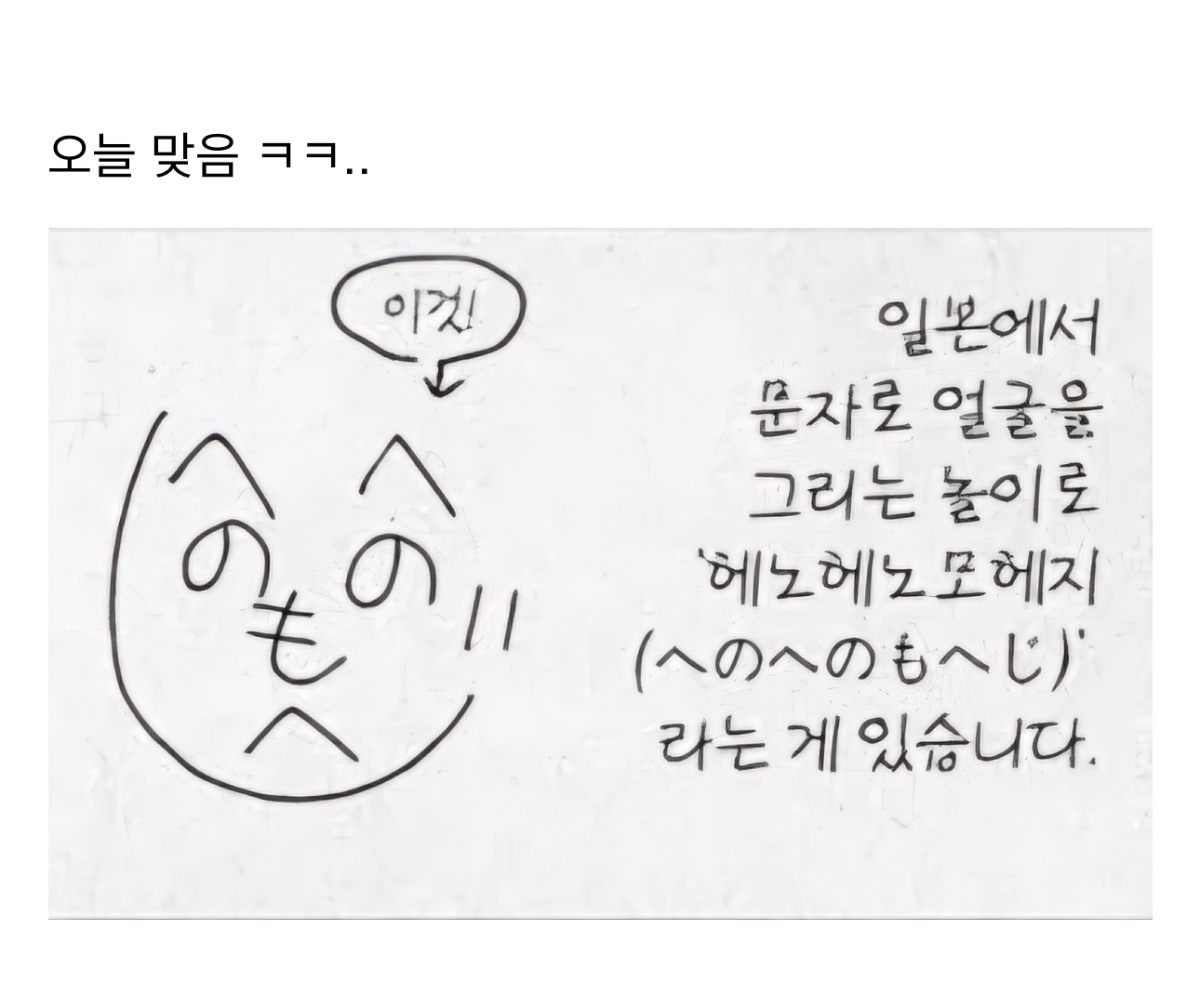 오늘 맞음 ㅋㅋ..
이것
へ へ
の の
も
へ
일본에서
문자로 얼굴을
그리는 놀이로
'헤노헤노모헤지
(へのへのもへじ)'
라는 게 있습니다.